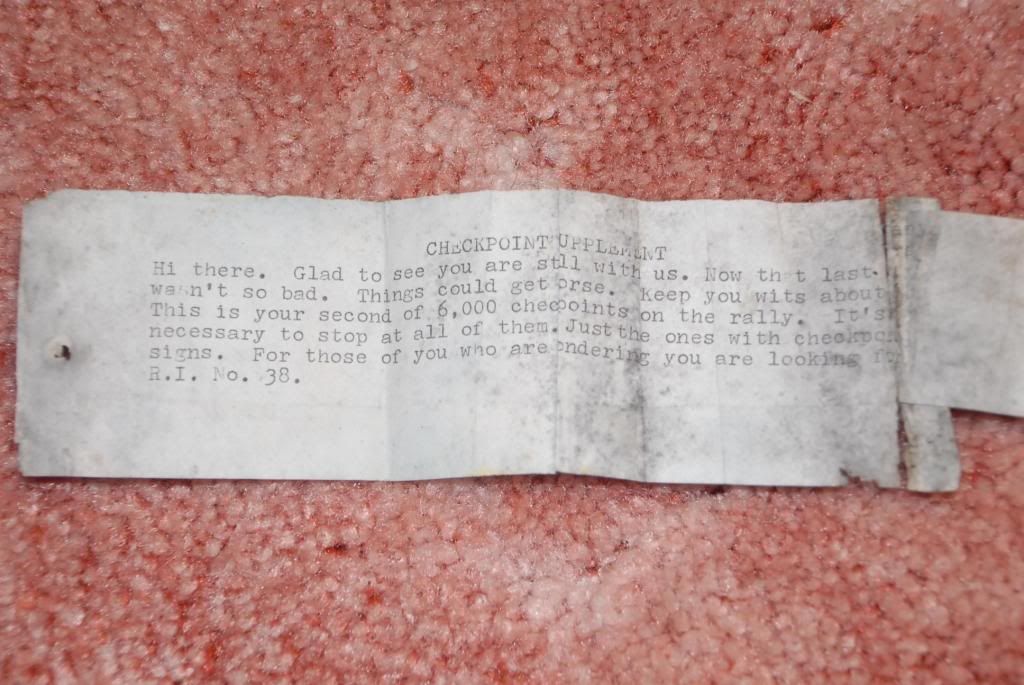 CHECKPOINT UPPLEMENT
Hi there. Glad to see you are stll with us. Now th t last
wasn't so bad. Things could get orse. Keep you wits about
This is your second of 6,000 checpoints on the rally. It's
necessary to stop at all of them. Just the ones with checkpo
signs. For those of you who are ondering you are looking f
R.I. No. 38.